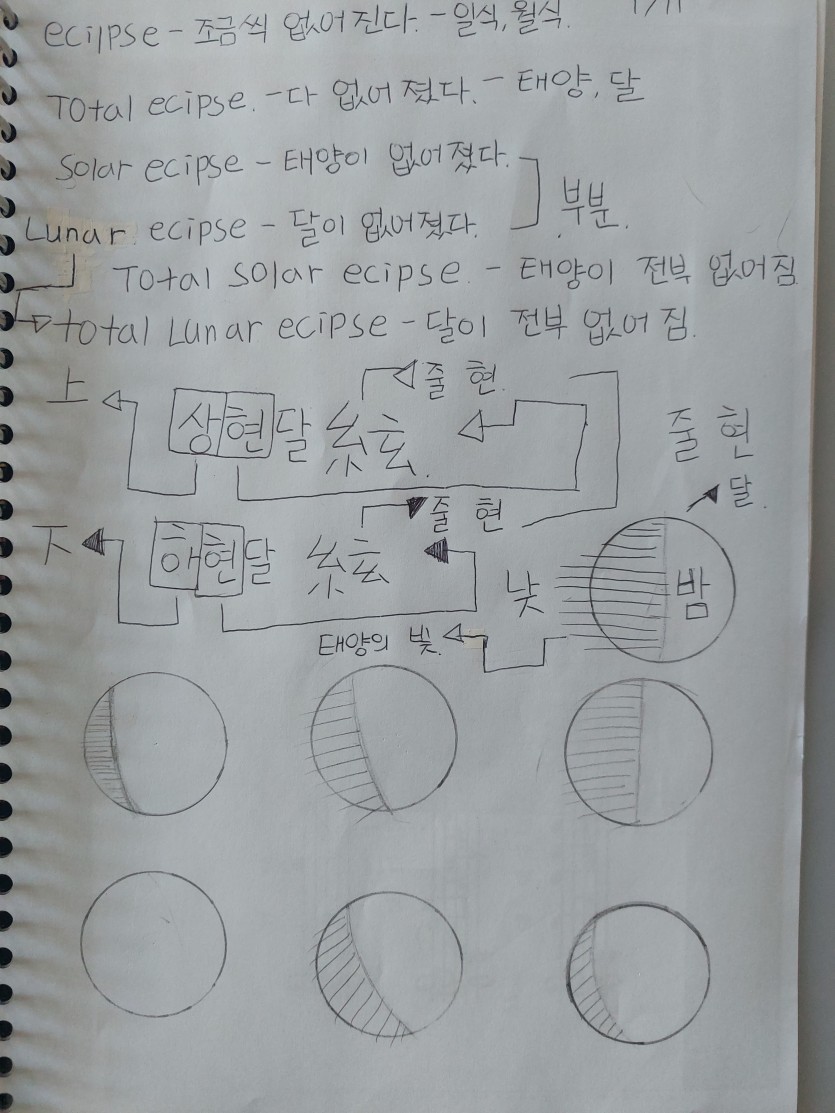 ecilpse - 조금씩 없어진다. - 일식, 월식.
Total ecipse. - 다 없어졌다. - 태양, 달
Solar ecipse - 태양이 없어졌다.
부분.
Lunar ecipse - 달이 없어졌다.
Total solar ecipse. - 태양이 전부 없어짐
total Lunar ecipse - 달이 전부 없어짐.
줄 현.
上 상현달 糸玄.
줄 현
달.
줄 현
下 해현달 糸玄
낮 밤
태양의 빛.